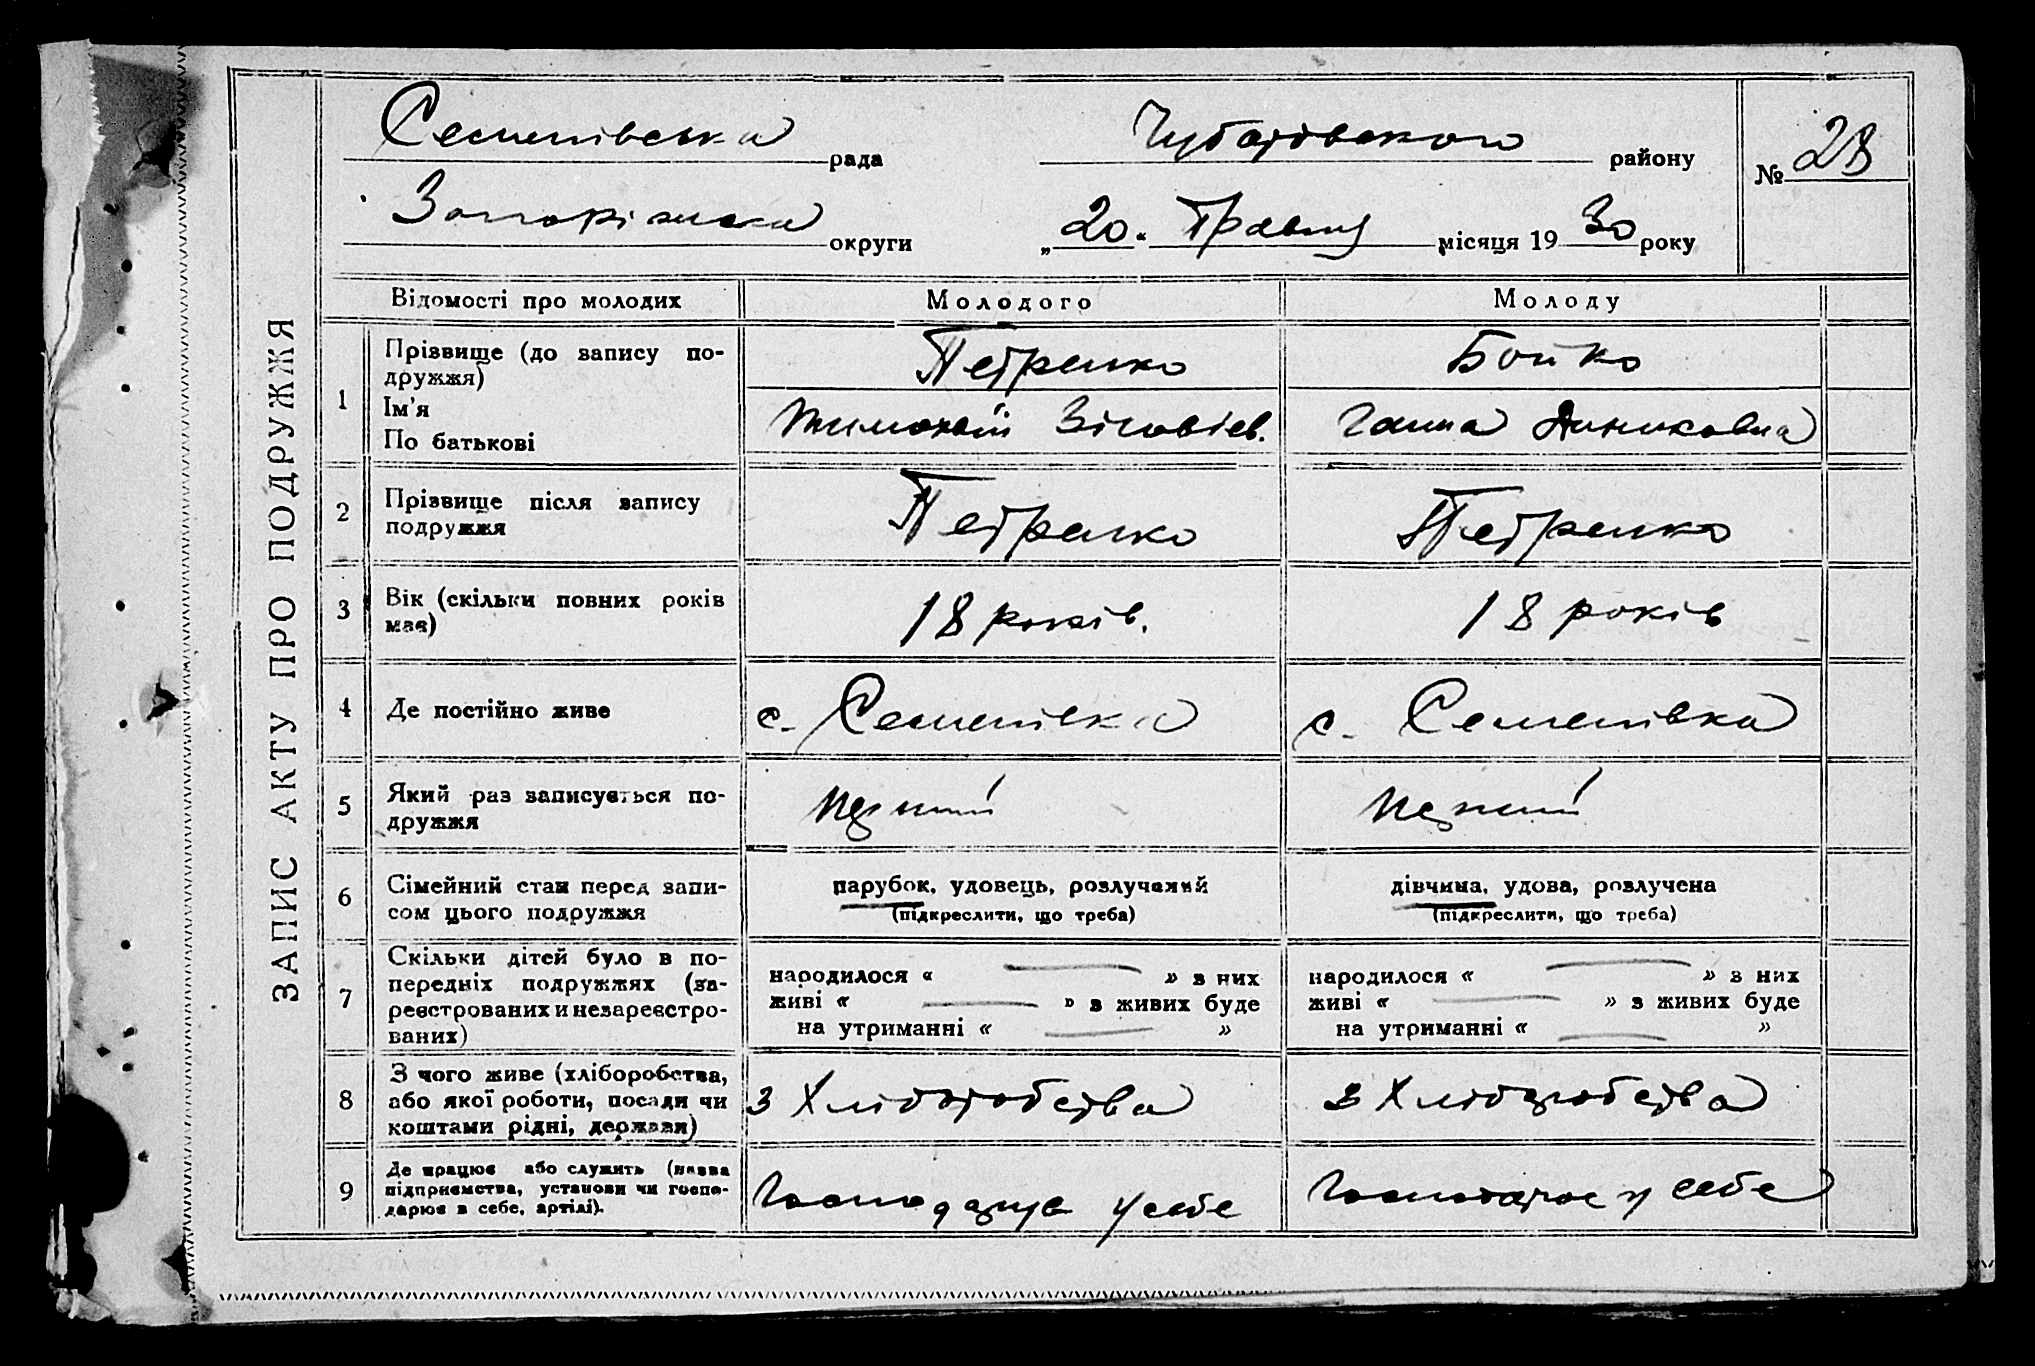 ЗАПИС АКТУ ПРО ПОДРУЖЖЯ
Семенівська рада
Чубарівського району
№ 28
Запоріжська округи
„20“ Травня місяця 1930 року
Відомості про молодих
Молодого
Молоду
1
Прізвище (до запису по-
дружжя)
Ім'я
По батькові
Петренко
Тимофій Зіновіев.
Бойко
Ганна
2
Прізвище після запису
подружжя
Петренко
Петренко
3
Вік (скільки повних років
має)
18 років.
18 років
4
Де постійно живе
с. Семенівка
с. Семенівка
5
Який раз записується по-
дружжя
перший
перший
6
Сімейний стан перед запи-
сом цього подружжя
парубок, удовець, розлучений
(підкреслити, що треба)
дівчина, удова, розлучена
(підкреслити, що треба)
7
Скільки дітей було в по-
передніх подружжях (за-
реєстрованих и незареєстро-
ваних)
народилося « — » з них
живі « — » з живих буде
на утриманні « — »
народилося « — » з них
живі « — » з живих буде
на утриманні « — »
8
З чого живе (хліборобства,
або якої роботи, посади чи
коштами рідні, держави)
з Хліборобства
з Хліборобства
9
Де працює або служить (назва
підприємства, установи чи госпо-
дарює в себе, артілі).
Господарує у себе
Господарює у себе